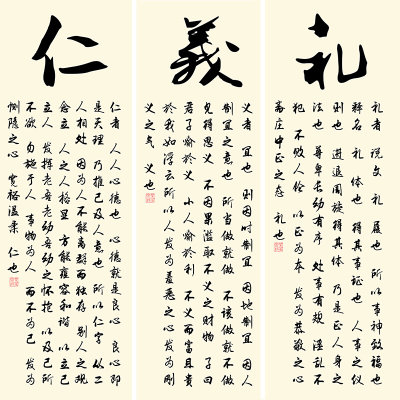 仁
仁者 人人心德也 心德就是良心 良心即
是天理 乃推己及人意也 所以仁字 从二
人相处 因为人不能离群而独存 别人之观
念立 人之人格显 方能雍容和谐 以立己
立人 发挥老吾老幼吾幼之怀抱 以及己
不欲 勿施于人 事物为人 而不为己 发为
恻隐之心 宽裕温柔 仁也
義
义者 宜也 则因时制宜 因地制宜 因人
制宜之意也 所当做就做 不该做就不做
见得思义 不因果滥取不义之财物 子曰
君子喻於义 小人喻於利 不义而富且贵
於我如浮云 所以人发为羞恶之心 发为刚
义之气 义也
礼
礼者 说文 礼 履也 所以事神致福也
释名 礼 体也 得其事证也 人事之仪
则也 进退周旋得其体 乃是正人身之
法也 尊卑长幼有序 处事有规 淫乱不
犯 不败人伦 以正为本 发为恭敬之心
斋庄中正之态 礼也